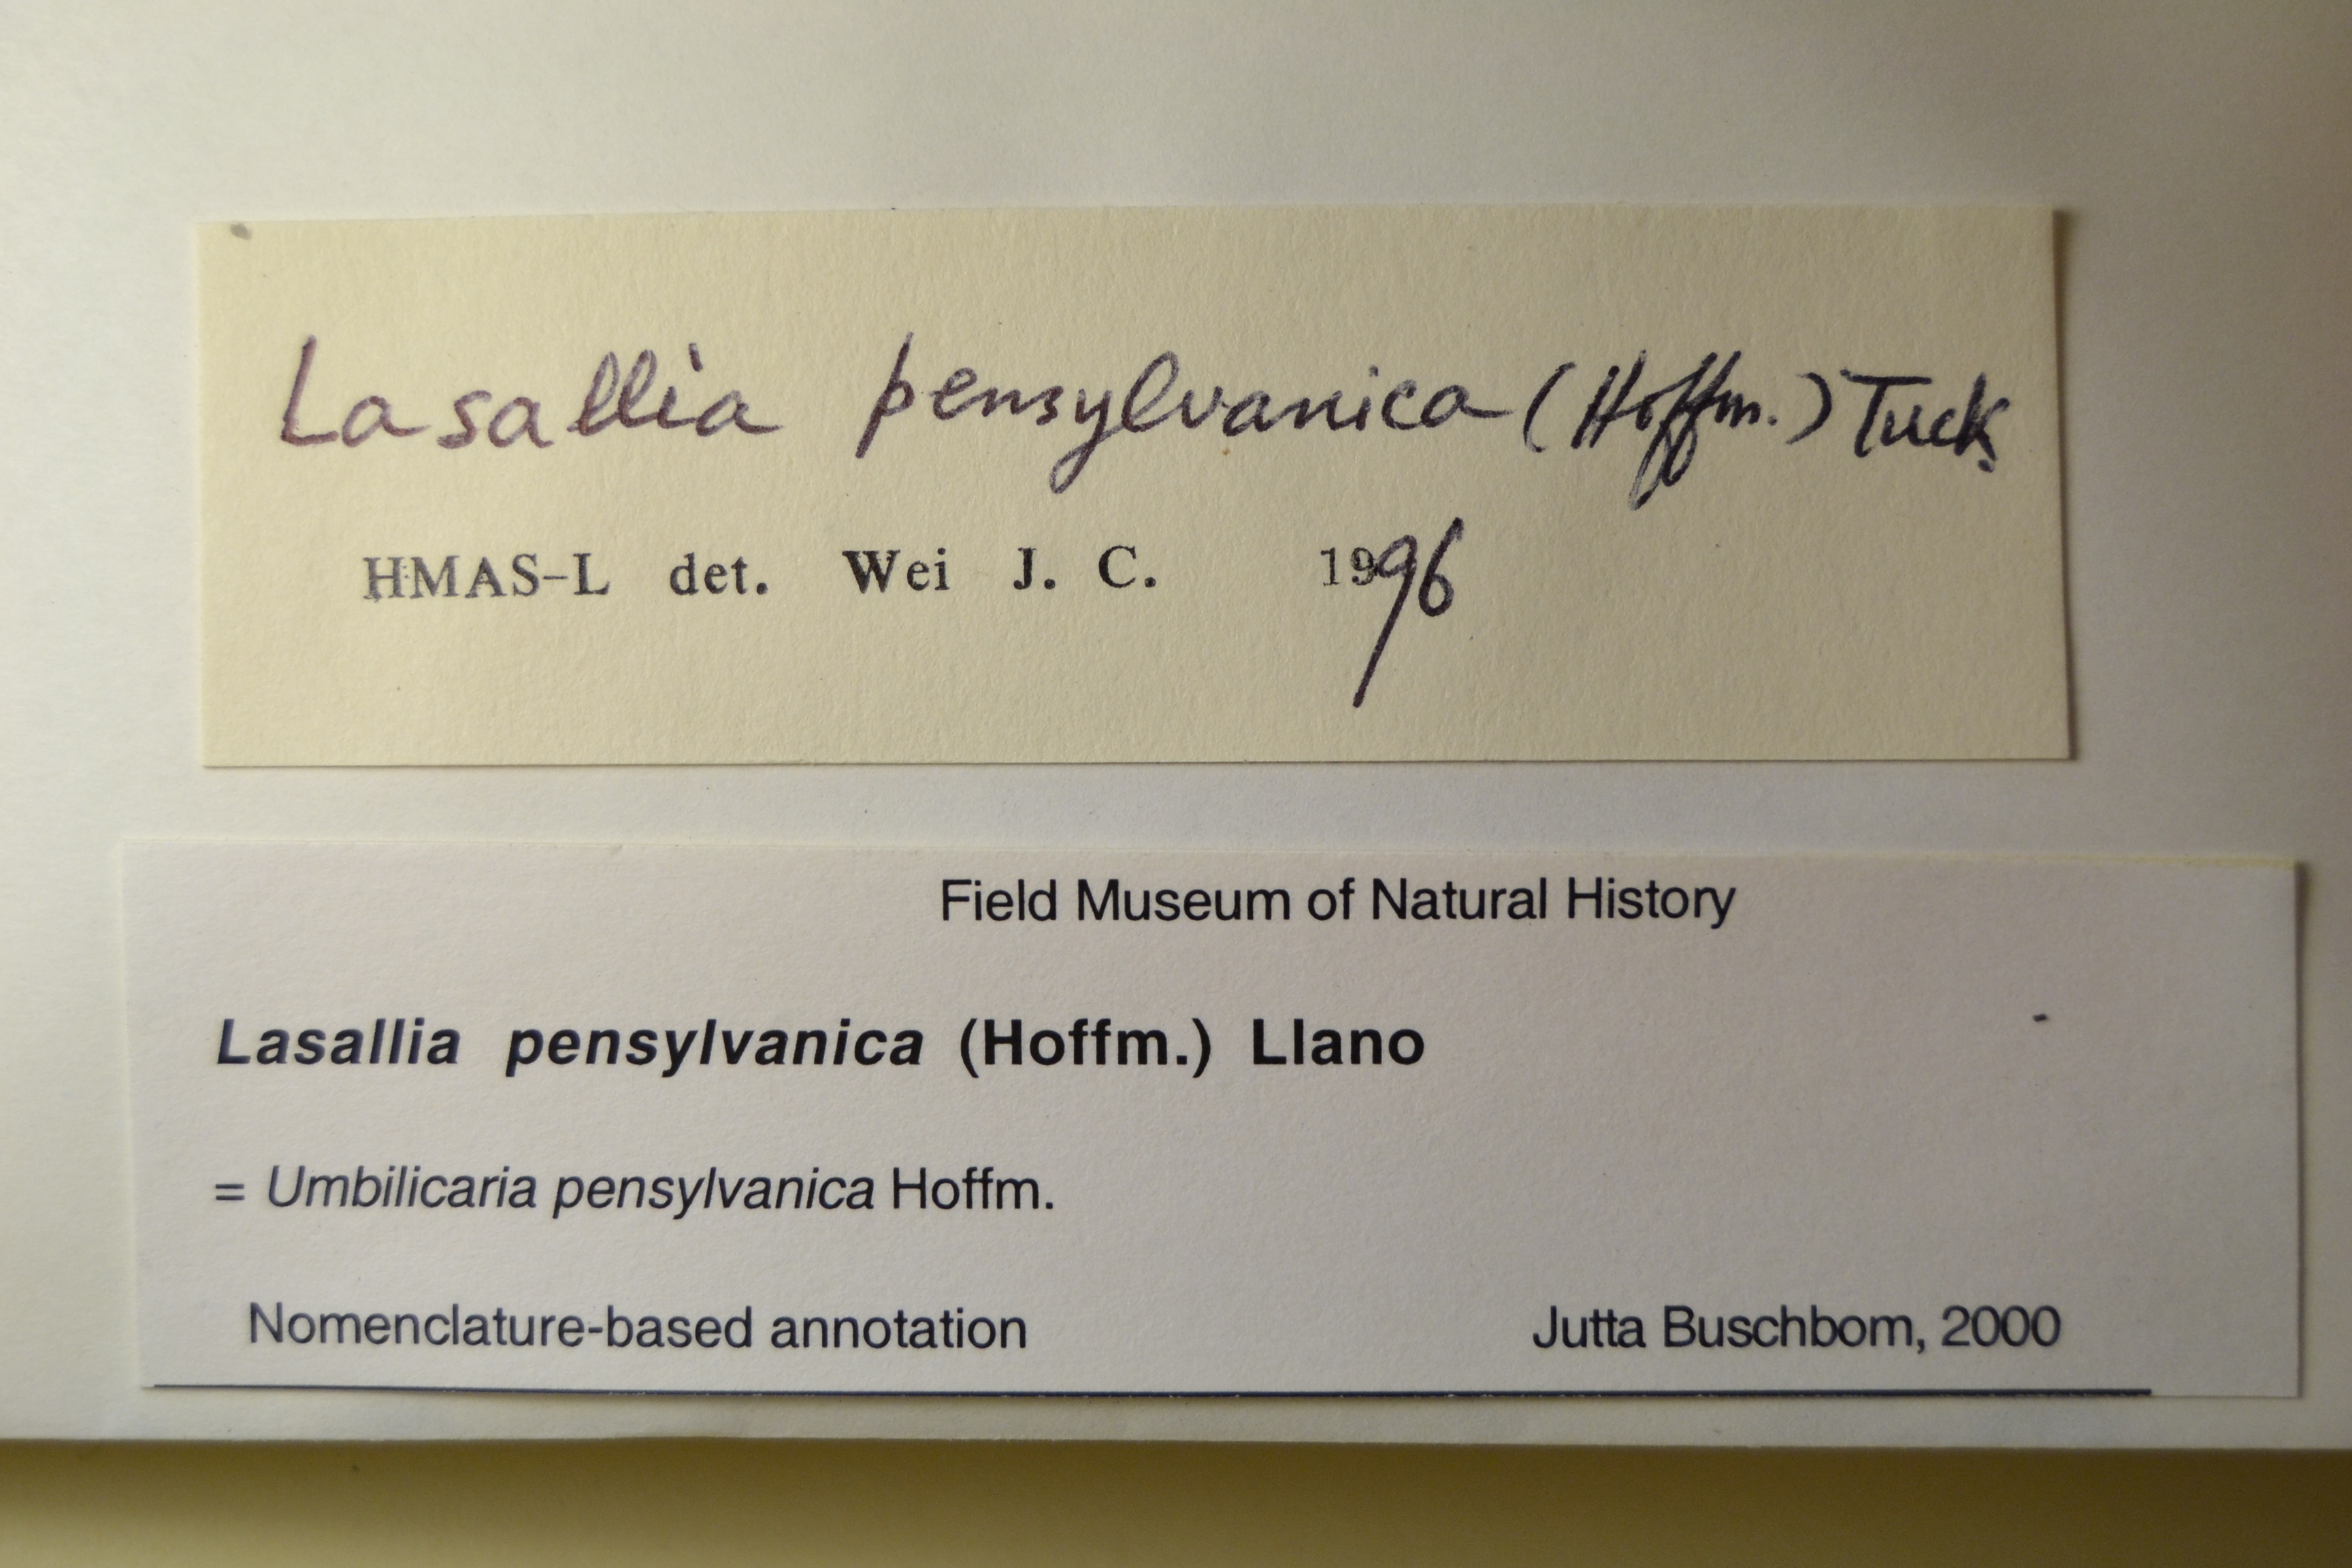 Lasallia pensylvanica (Hoffm.) Tuck.
HMAS-L det. Wei J. C. 1996
Field Museum of Natural History
Lasallia pensylvanica (Hoffm.) Llano
= Umbilicaria pensylvanica Hoffm.
Nomenclature-based annotation Jutta Buschbom, 2000